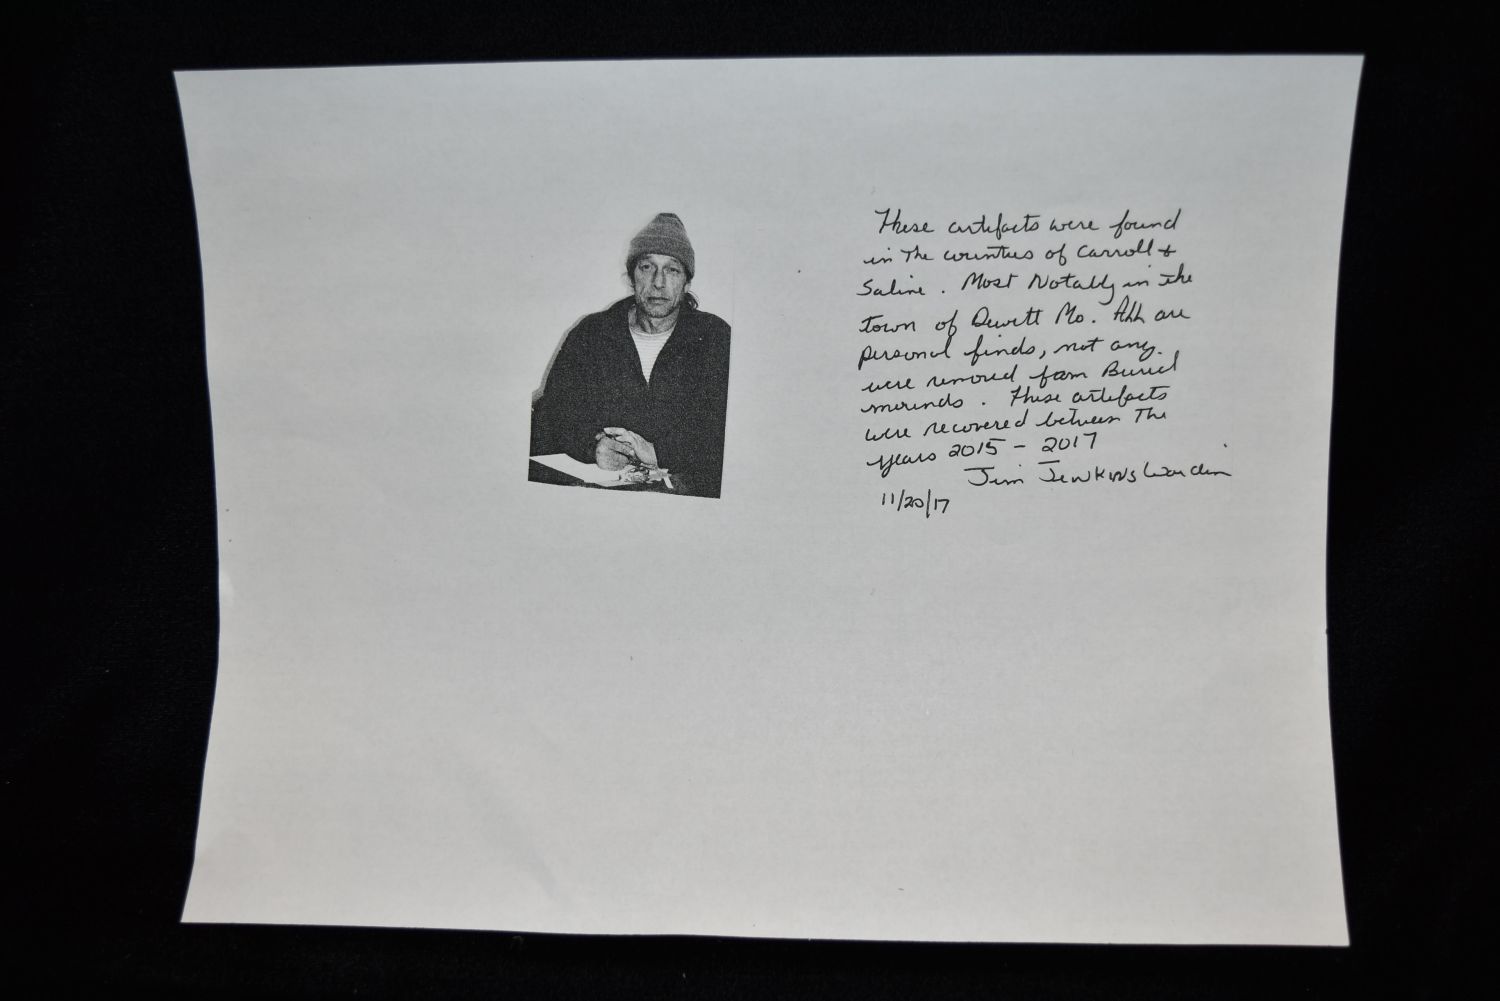 These artifacts were found
in The counties of Carroll &
Saline. Most Notably in the
town of Dewitt Mo. All are
personal finds, not any
were removed from Buriel
mounds. These artifacts
were recovered between The
years 2015 - 2017
Jim Jenkins
11/20/17